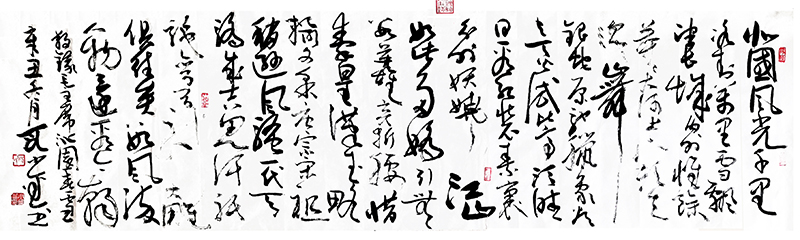 北國風光千里
冰封萬里雪飄
望長城內外惟餘
莽莽大河上下頓失
滔滔山舞
銀蛇原馳蠟象欲
與天公試比高須晴
日看紅裝素裹
分外妖嬈江山
如此多嬌引無
數英雄競折腰惜
秦皇漢武略
輸文采唐宗宋祖
稍遜風騷一代天
驕成吉思汗祇
識彎弓射大雕
俱往矣數風流
人物還看今朝
敬錄毛主席沁園春雪
辛丑月書